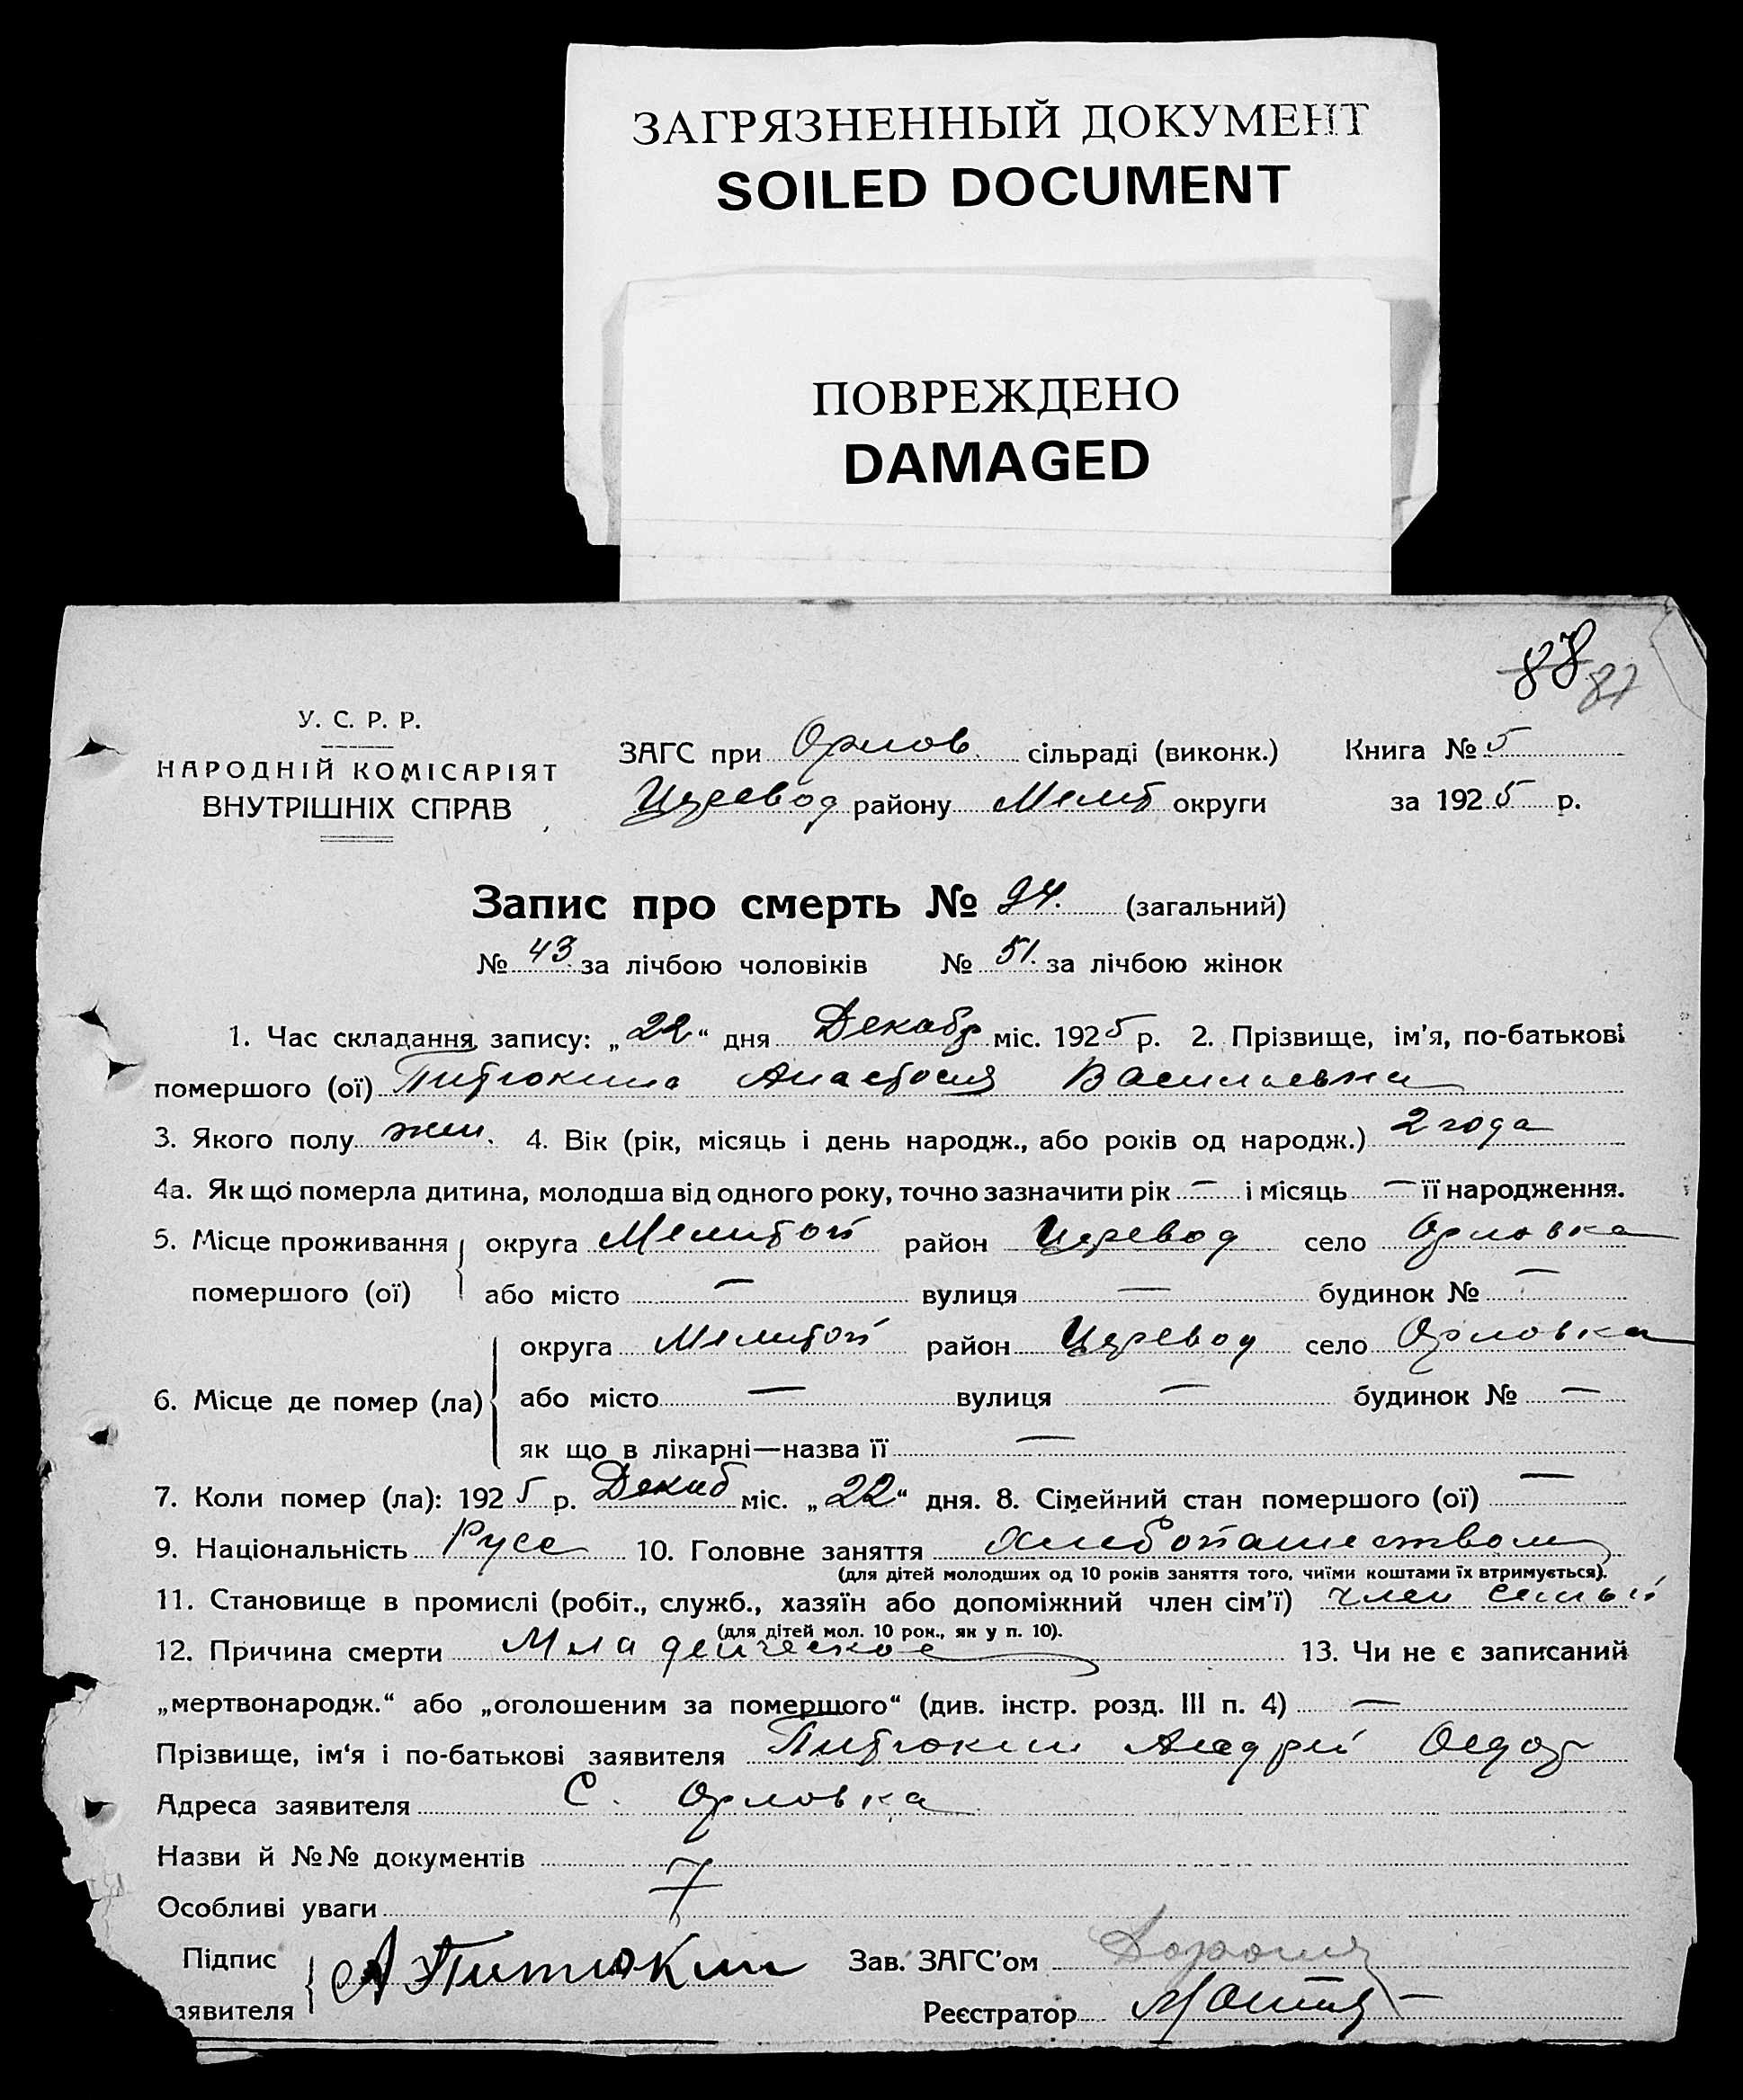 ЗАГРЯЗНЕННЫЙ ДОКУМЕНТ
SOILED DOCUMENT
ПОВРЕЖДЕНО
DAMAGED
88 87
У. С. Р. Р.
НАРОДНІЙ КОМІСАРІЯТ
ВНУТРІШНІХ СПРАВ
ЗАГС при Орлов. сільраді (виконк.) Книга № 5
Царевод району Мелит округи за 1925 р.
Запис про смерть № 94. (загальний)
№ 43 за лічбою чоловіків № 51. за лічбою жінок
1. Час складання запису: „22“ дня Декабр міс. 1925 р. 2. Прізвище, ім'я, по-батькові
помершого (ої) Питюкина Анастосия Васильевна
3. Якого полу жен. 4. Вік (рік, місяць і день народж., або років од народж.) 2 года
4а. Як що померла дитина, молодша від одного року, точно зазначити рік — і місяць — її народження.
5. Місце проживання округа Мелитоп район Царевод село Орловка
помершого (ої) або місто — вулиця — будинок № —
округа Мелитоп район Царевод село Орловка
6. Місце де помер (ла) або місто — вулиця — будинок № —
як що в лікарні—назва її —
7. Коли помер (ла): 1925 р. Декаб міс. „22“ дня. 8. Сімейний стан помершого (ої) —
9. Національність Русс 10. Головне заняття Хлебопашеством
(для дітей молодших од 10 років заняття того, чиїми коштами їх втримується).
11. Становище в промислі (робіт., служб., хазяїн або допоміжний член сім'ї) член семьи
(для дітей мол. 10 рок., як у п. 10).
12. Причина смерти Младенческое 13. Чи не є записаний
„мертвонародж.“ або „оголошеним за помершого“ (див. інстр. розд. III п. 4) —
Прізвище, ім‘я і по-батькові заявителя Питюкин Андрей
Адреса заявителя С. Орловка
Назви й №№ документів
Особливі уваги
Підпис
заявителя А Питюкин
Зав. ЗАГС'ом
Реєстратор